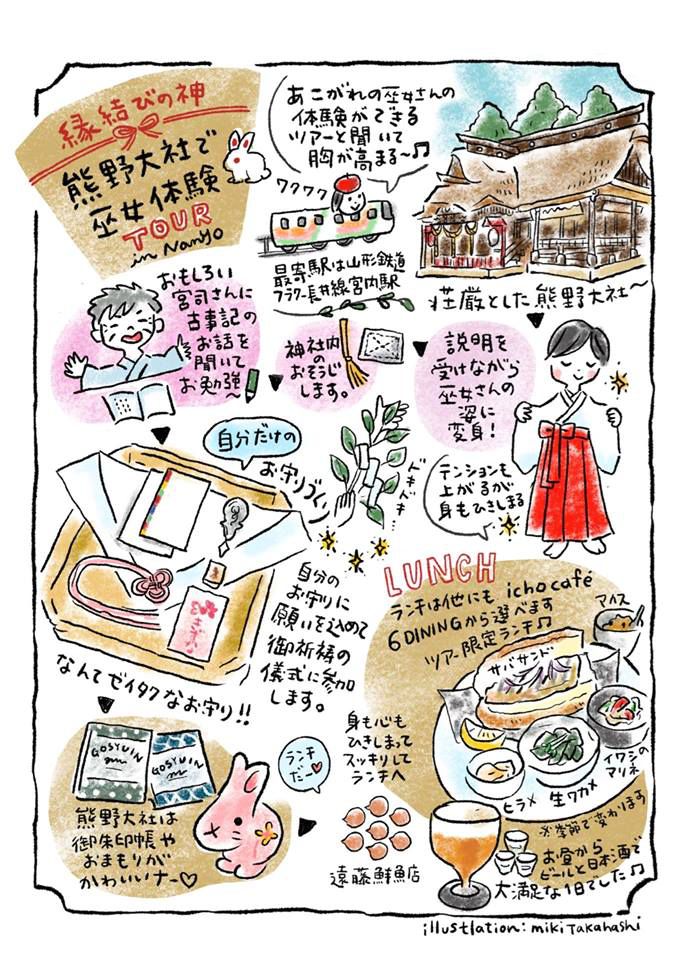 縁結びの神
熊野大社で
巫女体験
TOUR
in Nanyo
あこがれの巫女さんの
体験ができる
ツアーと聞いて
胸が高まる〜♫
ワクワク
最寄駅は山形鉄道
フラワー長井線宮内駅
荘厳とした熊野大社〜
説明を
受けながら
巫女さんの
姿に
変身!
テンションも
上がるが
身もひきしまる
神社内
のおそうじ
します。
おもしろい
宮司さんに
古事記の
お話を
聞いて
お勉強〜
自分だけの
お守りづくり
ドキドキ
自分の
お守りに
願いを込めて
御祈祷の
儀式に参加
します。
なんてゼイタクなお守り!!
GOSYUIN
GOSYUIN
熊野大社は
御朱印帳や
おまもりが
かわいいナー♡
ランチ
だー♥
身も心も
ひきしまって
スッキリして
ランチへ
遠藤鮮魚店
LUNCH
ランチは他にも icho café
6 DININGから選べます
ツアー限定ランチ♫
アイス
サバサンド
イワシの
マリネ
ヒラメ
生ワカメ
※季節で変わります
お昼から
ビールと日本酒で
大満足な1日でした♫
illustlation: miki TAKAHASHi